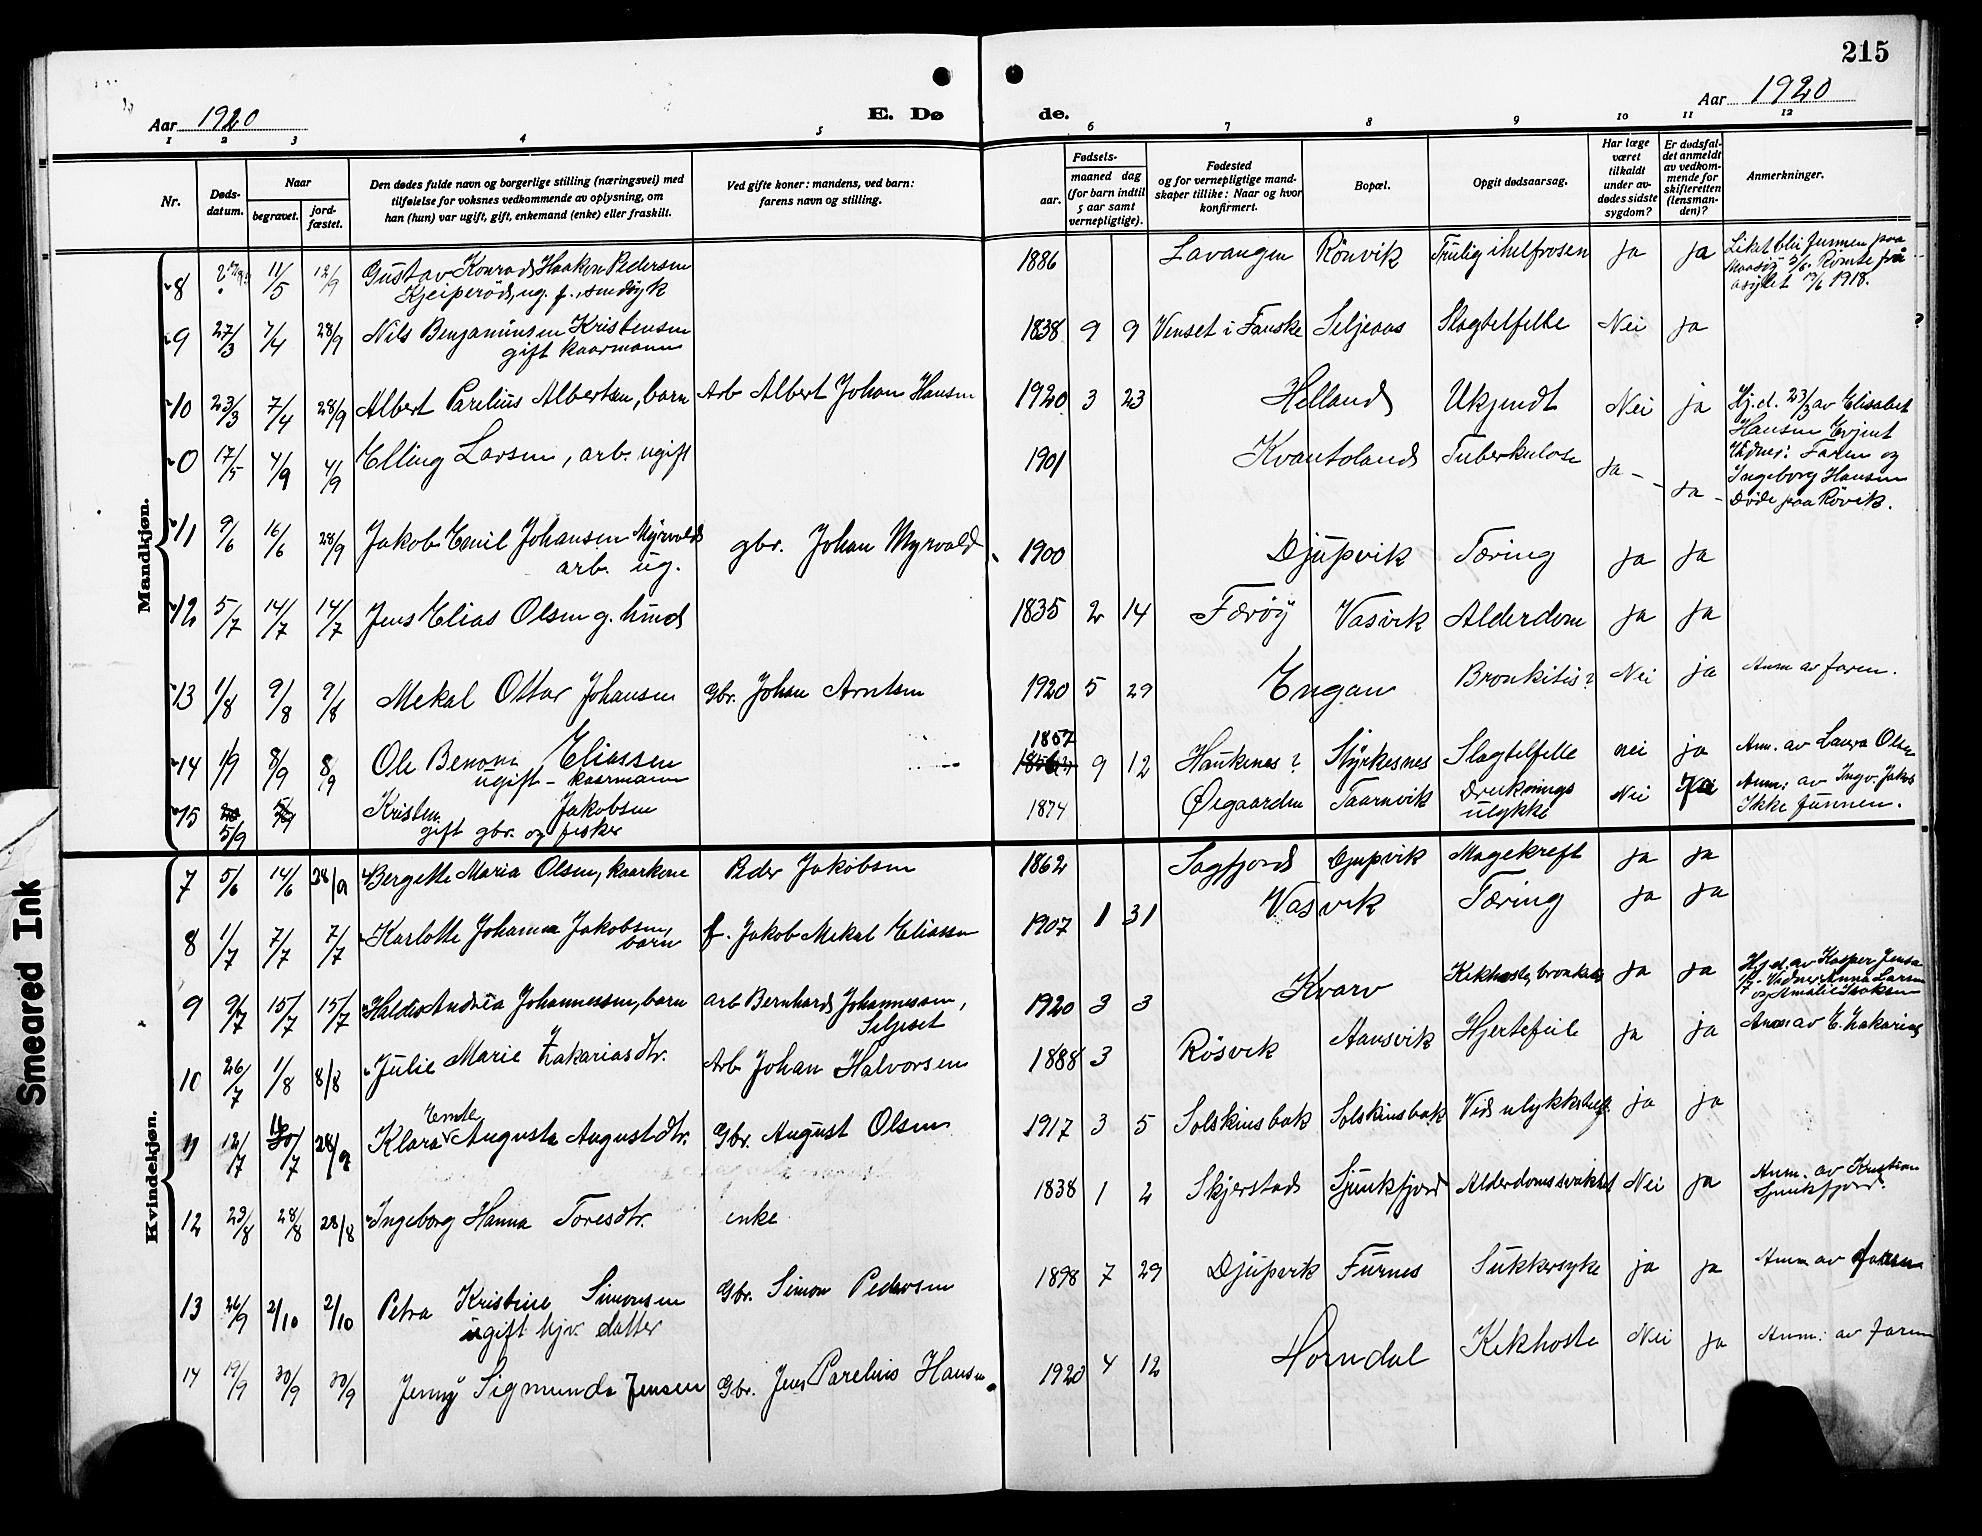 215
Aar 1920
E. Dø
de.
Aar 1920
1 2 3 4 5 6 7 8 9 10 11 12
Nr.
Døds-
datum.
Naar
begravet.
jord-
fæstet.
Den dødes fulde navn og borgerlige stilling (næringsvei) med
tilføielse for voksnes vedkommende av oplysning, om
han (hun) var ugift, gift, enkemand (enke) eller fraskilt.
Ved gifte koner: mandens, ved barn:
farens navn og stilling.
Fødsels-
aar.
maaned dag
(for barn indtil
5 aar samt
vernepligtige).
Fødested
og for vernepligtige mand-
skaper tillike: Naar og hvor
konfirmert.
Bopæl.
Opgit dødsaarsag.
Har læge
været
tilkaldt
under av-
dødes sidste
sygdom?
Er dødsfal-
det anmeldt
av vedkom-
mende for
skifteretten
(lensman-
den)?
Anmerkninger.
Mandkjøn.
8 11/5 12/9 Gustav Konrad Haakon Pedersen 1886 Lavangen Rönvik Trulig ihelfrosen ja ja Liket blei funnen paa
Kjeiperöd, ug. f., sindsyk
Rømte frå
asylet 17/6 1918.
9 27/3 7/4 28/9 Nils Benjaminsen Kristensen 1838 9 9 Venset i Fauske Seljeaas Slagtelfelle Nei ja
gift kaarmann
10 23/3 7/4 28/9 Albert Parelius Albertsen, barn Arb Albert Johan Hansen 1920 3 23 Helland Ukjendt Nei ja Hj.d. 23/3 av Elisabet
Hansen Evjent
0 17/5 4/9 4/9 Elling Larsen, arb. ugift 1901 Kvantoland Tuberkulose ja - ja - Vidner: Faren og
Ingeborg Hansen
Döde paa Rövik.
11 9/6 16/6 28/9 Jakob Emil Johansen Myrvold gbr. Johan Myrvold 1900 Djupvik Tæring ja ja
arb. ug.
12 5/7 14/7 14/7 Jens Elias Olsen g. hind 1835 2 14 Færöy Vasvik Alderdom ja ja
13 1/8 9/8 9/8 Mekal Ottar Johansen Gbr. Johan Arntsen 1920 5 29 Engan Bronkitis? Nei ja Anm av faren.
14 1/9 8/9 8/9 Ole Benoni Eliassen 1857 9 12 Haukenes? Styrkesnes Slagtelfelle nei ja Anm. av Laura Olsen
ugift - kaarmann
15 5/9 Kristen Jakobsen 1874 Øigaarden Taarnvik Druknings Nei Ja Anm: av Ingv. Jakobs
gift gbr. og fisker ulykke Ikke funnen.
Kvindekjøn.
7 5/6 14/6 28/9 Bergette Maria Olsen, kaarkone Peder Jakobsen 1862 Sagfjord Djupvik Magekreft ja ja
8 1/7 7/7 7/7 Karlotte Johanna Jakobsen, f. Jakob Mekal Eliassen 1907 1 31 Vasvik Tæring ja ja
barn
9 9/7 15/7 15/7 Haldis Andrea Johannessen, barn arb Bernhard Johannessen, 1920 3 3 Kvarv Kikhoste, bronkit ja ja Hj.d. av Kasper Jensen
Seljeset
Vidner: Anna Larsen
og Amalie Isaksen
10 26/7 1/8 8/8 Julie Marie Zakariasdtr. Arb Johan Halvorsen 1888 3 Rösvik Aansvik Hjertefeil ja ja Anm av E. Zakarias
11 12/7 28/9 Klara Emte Augusta Augustdtr. Gbr. August Olsen 1917 3 5 Solskinsbak Solskinsbak Ved ulykkstilf. ja ja
12 23/8 28/8 28/8 Ingeborg Hanna Toresdtr. enke 1838 1 2 Skjerstad Sjunkfjord Alderdomssvakhet Nei ja Anm. av Kristian
Sjunkfjord.
13 26/9 2/10 2/10 Petra Kristine Simonsen Gbr. Simon Pedersen 1898 7 29 Djupvik Furnes Sukkersyke ja ja Anm av faren
ugift hjv. datter
14 19/9 30/9 30/9 Jenny Sigmunda Jensen Gbr. Jens Parelius Hansen 1920 4 12 Horndal Kikhoste Nei ja Anm: av faren
Smeared Ink